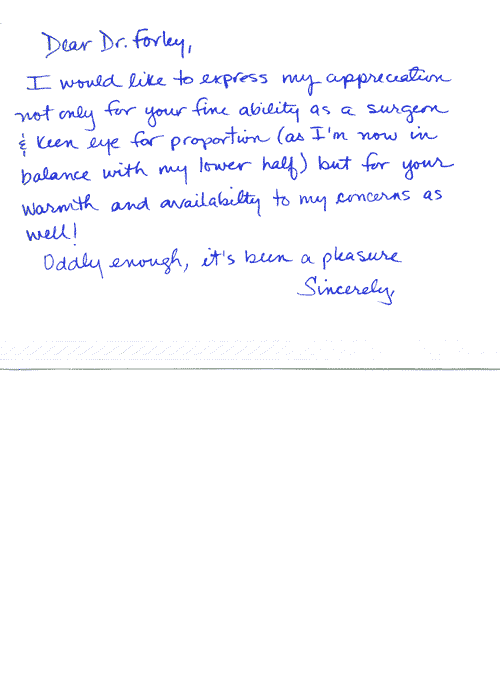 Dear Dr. Forley,
I would like to express my appreciation
not only for your fine ability as a surgeon
& keen eye for proportion (as I'm now in
balance with my lower half) but for your
warmth and availabilty to my concerns as
well!
Oddly enough, it's been a pleasure
Sincerely,